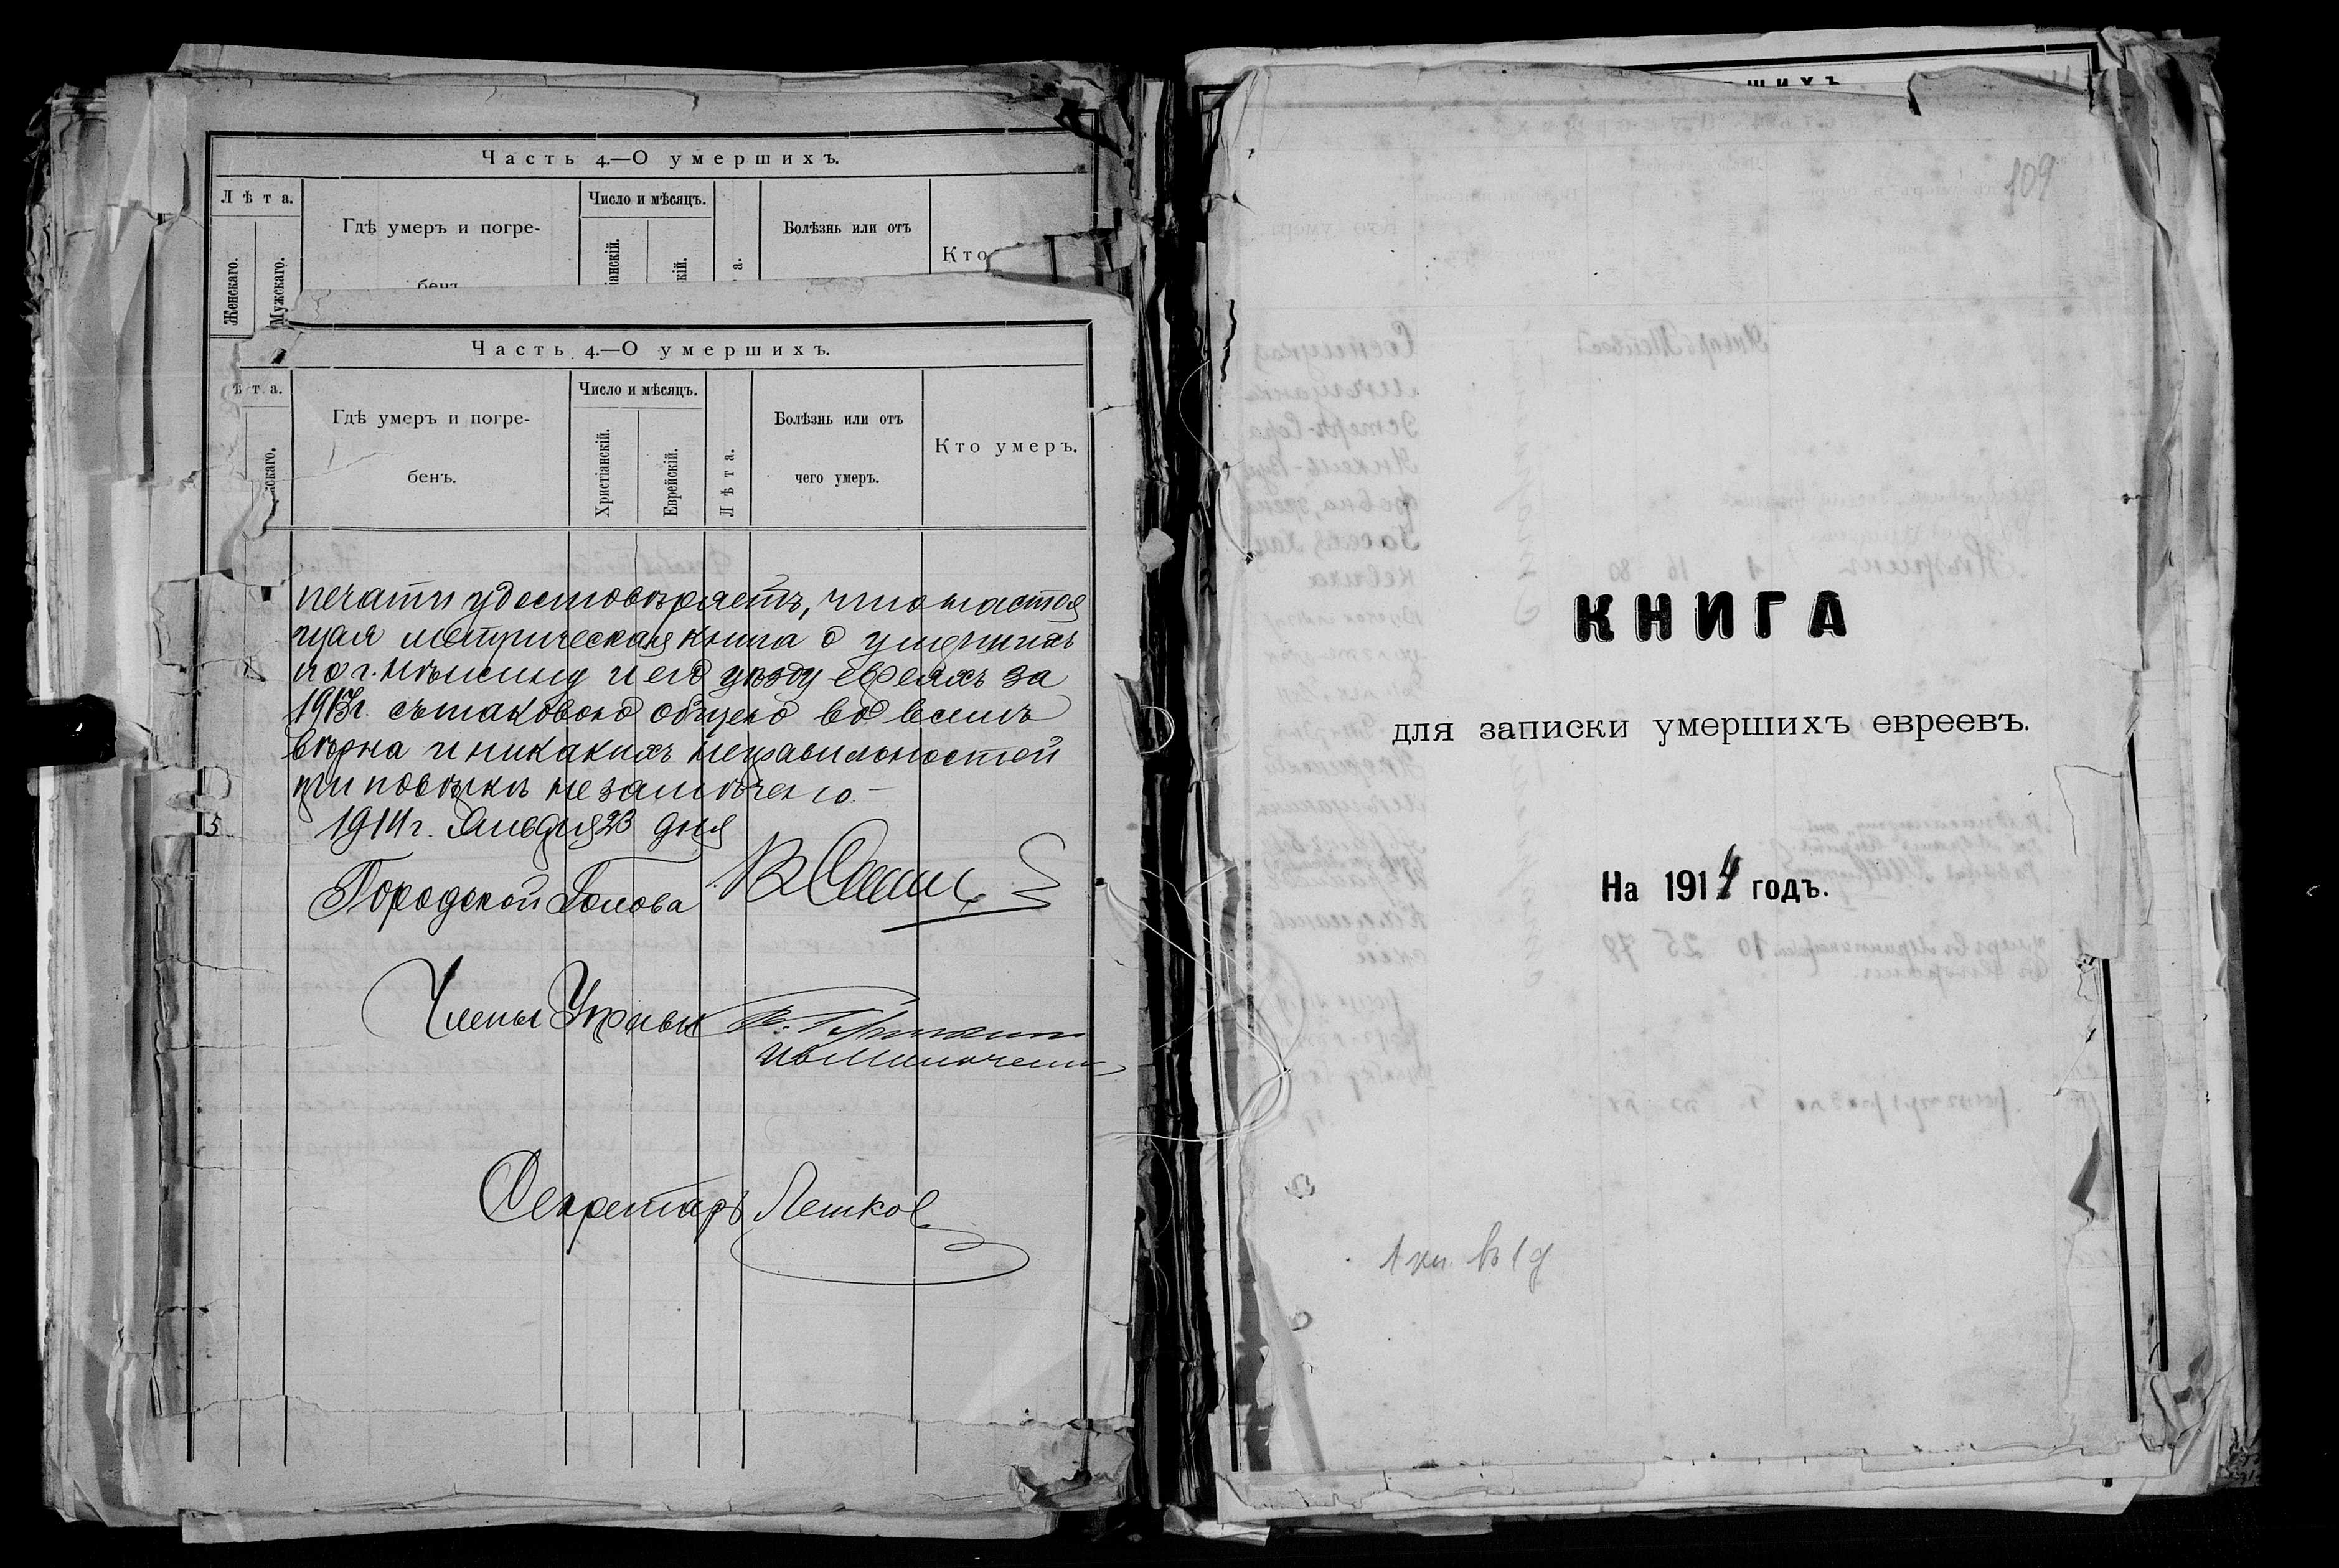 Часть 4.—О умершихъ.
Лѣта.
Женскаго.
Мужскаго.
Гдѣ умеръ и погре-
бенъ
Число и мѣсяцъ.
анскій.
кій.
а.
Болѣзнь или отъ
Кто
Часть 4.—О умершихъ.
ѣта.
скаго.
Гдѣ умеръ и погре-
бенъ.
Число и мѣсяцъ.
Христіанскій.
Еврейскій.
Лѣта.
Болѣзнь или отъ
чего умеръ.
Кто умеръ.
печати удостовѣряетъ, что настоя
щая метрическая книга о умершихъ
по г. Нѣжину и его уѣзду евреяхъ за
1913г. съ таковою общею во всемъ
вѣрна и никакихъ неправильностей
при повѣркѣ не замѣчено.—
1914 г. Января 23 дня
Городской Голова
Члены Управы
Секретарь Лешков
5
шихъ
109
КНИГА
для записки умершихъ евреевъ.
На 1914 годъ.
1 кн. въ 1 д